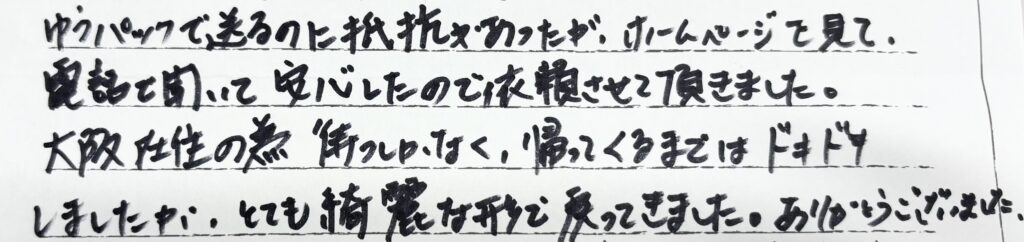 ゆうパックで送るのに抵抗があったが、ホームページを見て、
電話で聞いて安心したので依頼させて頂きました。
大阪在住の為待つしかなく、帰ってくるまではドキドキ
しましたが、とても綺麗な形で戻ってきました。ありがとうございました。